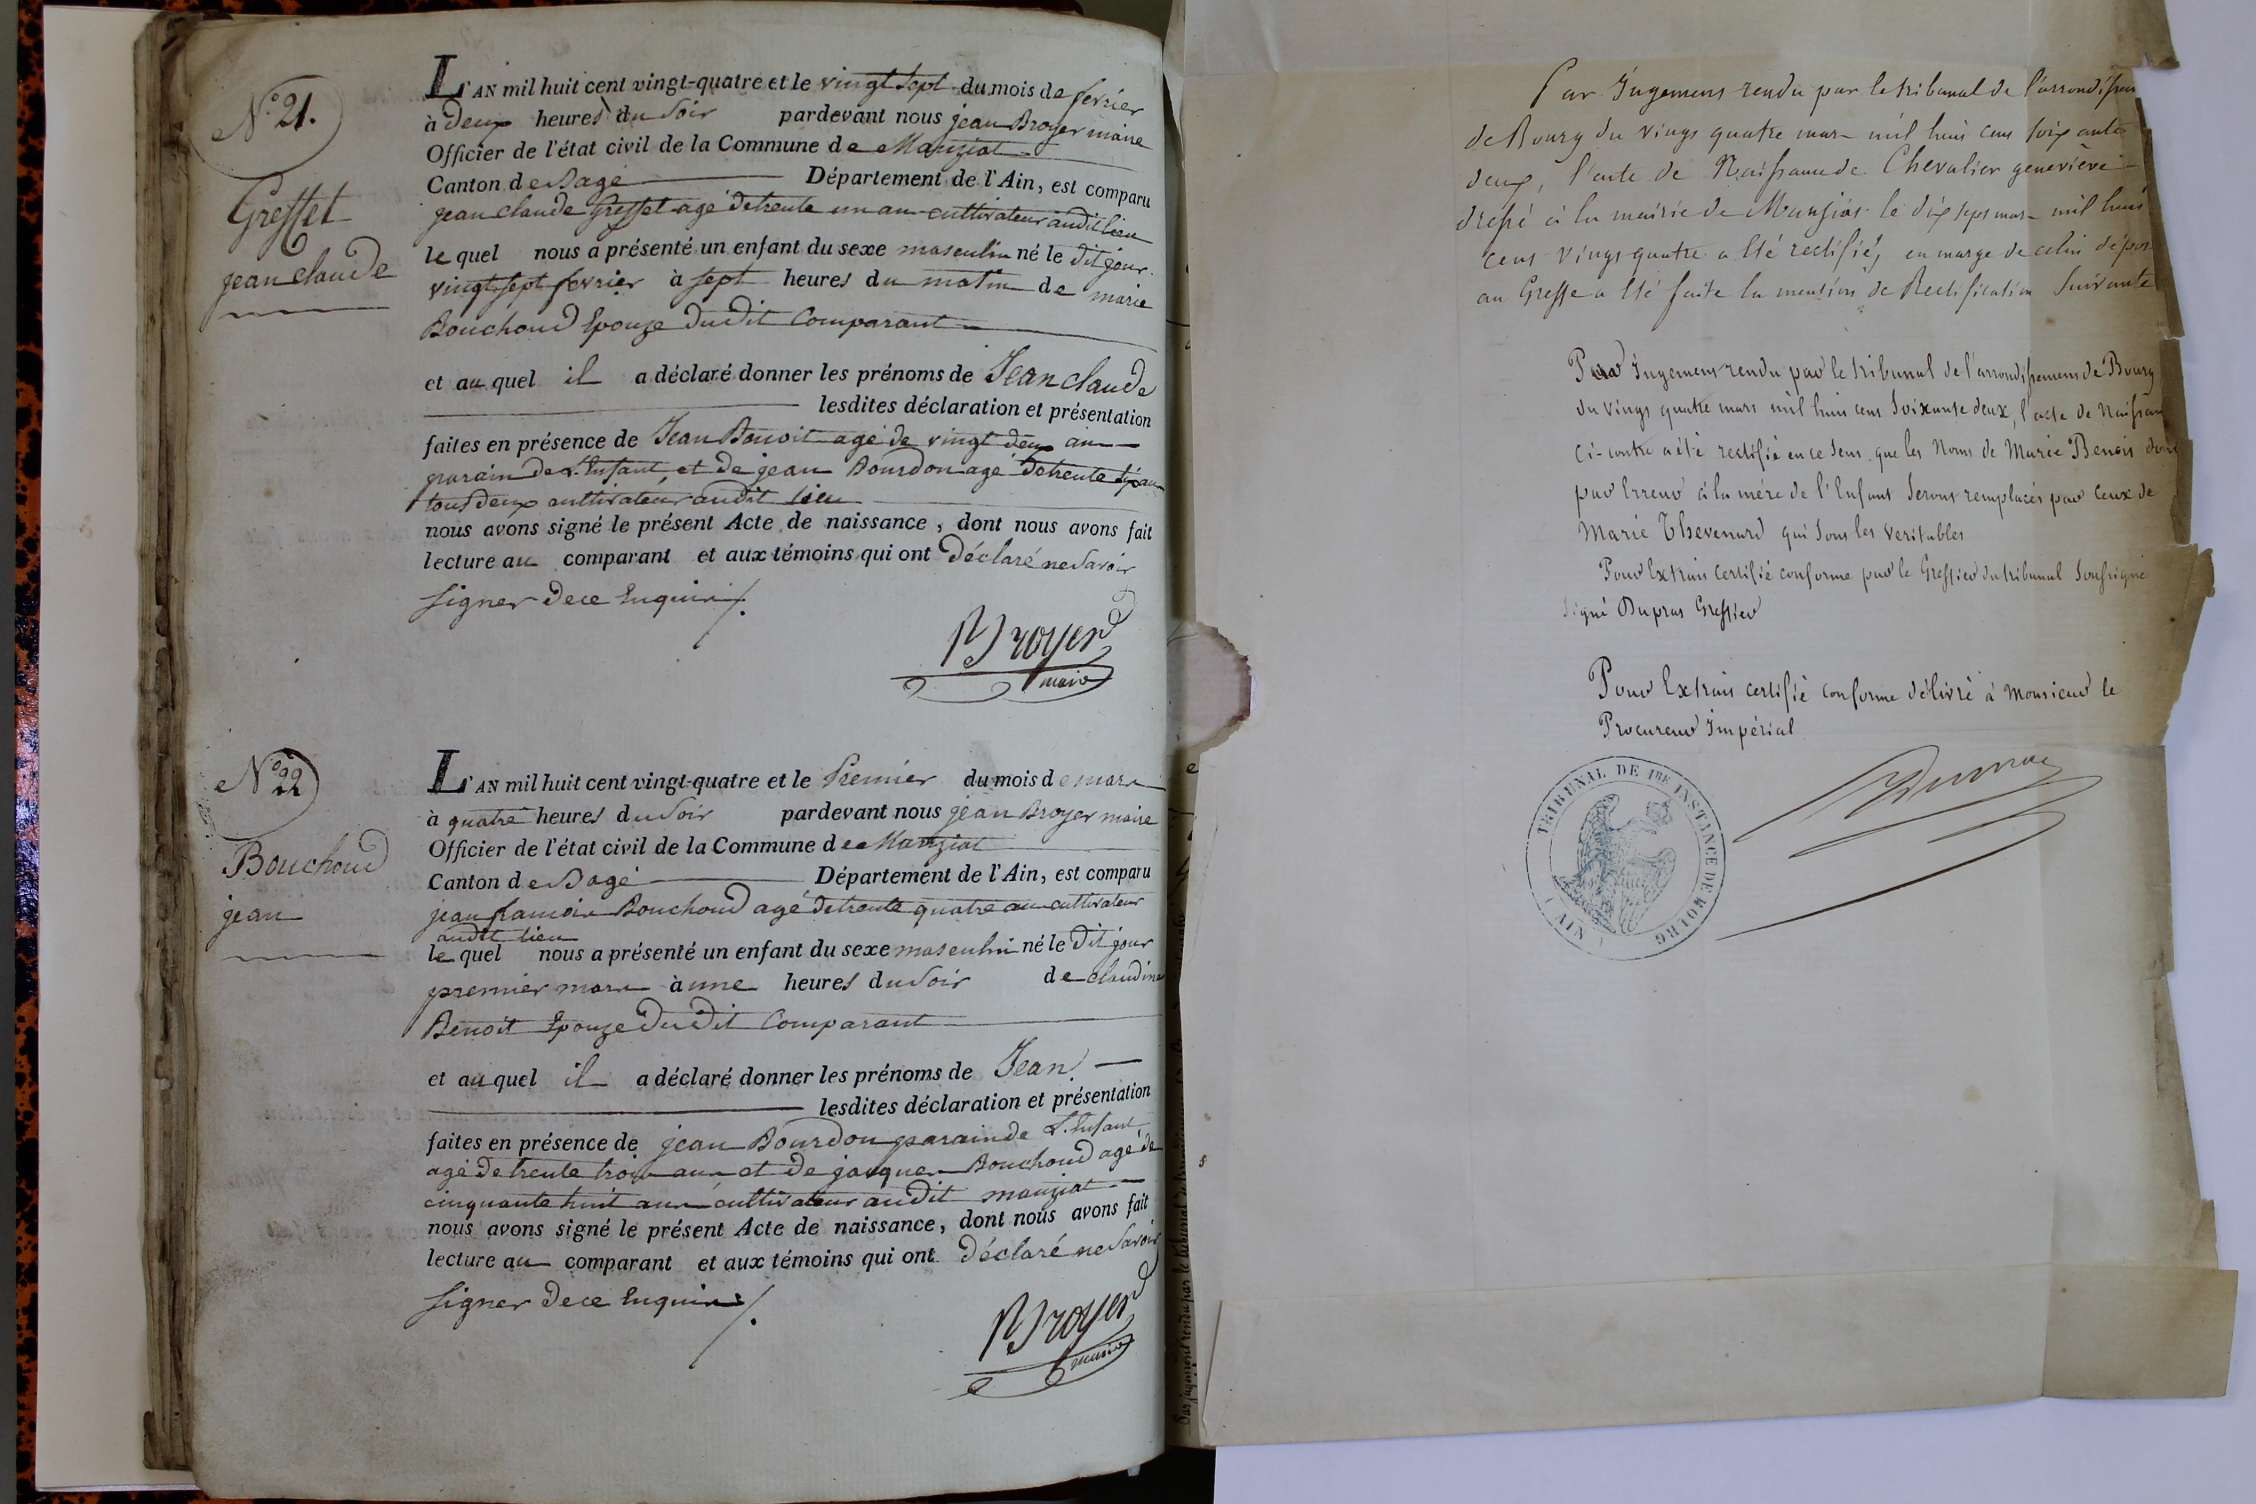 N.° 21.
Greffet
jean claude
L'AN mil huit cent vingt-quatre et le vingt sept du mois de fevrier
à deux heures du soir pardevant nous jean Broyer maire
Officier de l'état civil de la Commune de Manziat
Canton de Bagé Département de l'Ain, est comparu
jean claude Greffet agé de trente un an cultivateur audit lieu
le quel nous a présenté un enfant du sexe masculin né le dit jour
vingt sept fevrier à sept heures du matin de marie
Bouchoud Epouze du dit Comparant
et au quel il a déclaré donner les prénoms de Jean claude
lesdites déclaration et présentation
faites en présence de Jean Benoit agé de vingt deux an
parain de L'Enfant et de jean Bourdon agé de trente six an
tous deux cultivateur audit lieu
nous avons signé le présent Acte de naissance, dont nous avons fait
lecture au comparant et aux témoins qui ont déclaré ne Savoir
Signer de ce Enquis /.
Broyer
maire
N.° 22
Bouchoud
jean
L'AN mil huit cent vingt-quatre et le Premier du mois de mars
à quatre heures du soir pardevant nous jean Broyer maire
Officier de l'état civil de la Commune de Manziat
Canton de Bagé Département de l'Ain, est comparu
jean francois Bouchoud agé de trente quatre an cultivateur
audit lieu
le quel nous a présenté un enfant du sexe masculin né le dit jour
premier mars à une heures du soir de claudine
Benoit Epouze du dit Comparant
et au quel il a déclaré donner les prénoms de Jean
lesdites déclaration et présentation
faites en présence de jean Bourdon parain de L'Enfant
agé de trente trois an et de jacques Bouchoud agé de
cinquante huit an cultivateur audit manziat
nous avons signé le présent Acte de naissance, dont nous avons fait
lecture au comparant et aux témoins qui ont déclaré ne Savoir
Signer de ce Enquis /.
Broyer
maire
Par jugement rendu par le tribunal de
Par Jugement rendu par le tribunal de l'arrondissem
de Bourg du vingt quatre mars mil huit cent soixante
deux, l'acte de Naissance de Chevalier geneviève
dressé à la mairie de Manziat le dix sept mars mil huit
cent vingt quatre a été rectifié, en marge de celui déposé
au Greffe a été faite la mention de Rectification Suivante
Par Jugement rendu par le tribunal de l'arrondissement de Bourg
du vingt quatre mars mil huit cent soixante deux, l'acte de Naissan
ci-contre a été rectifié en ce sens que les Noms de Marie Benoit
par Erreur à la mère de l'Enfant seront remplacés par ceux de
Marie Thevenard qui sont les véritables
Pour Extrait certifié conforme par le Greffier du tribunal soussigné
Signé Dupras Greffier
Pour Extrait certifié conforme délivré à Monsieur le
Procureur Impérial
TRIBUNAL DE 1RE INSTANCE DE BOURG
(AIN)